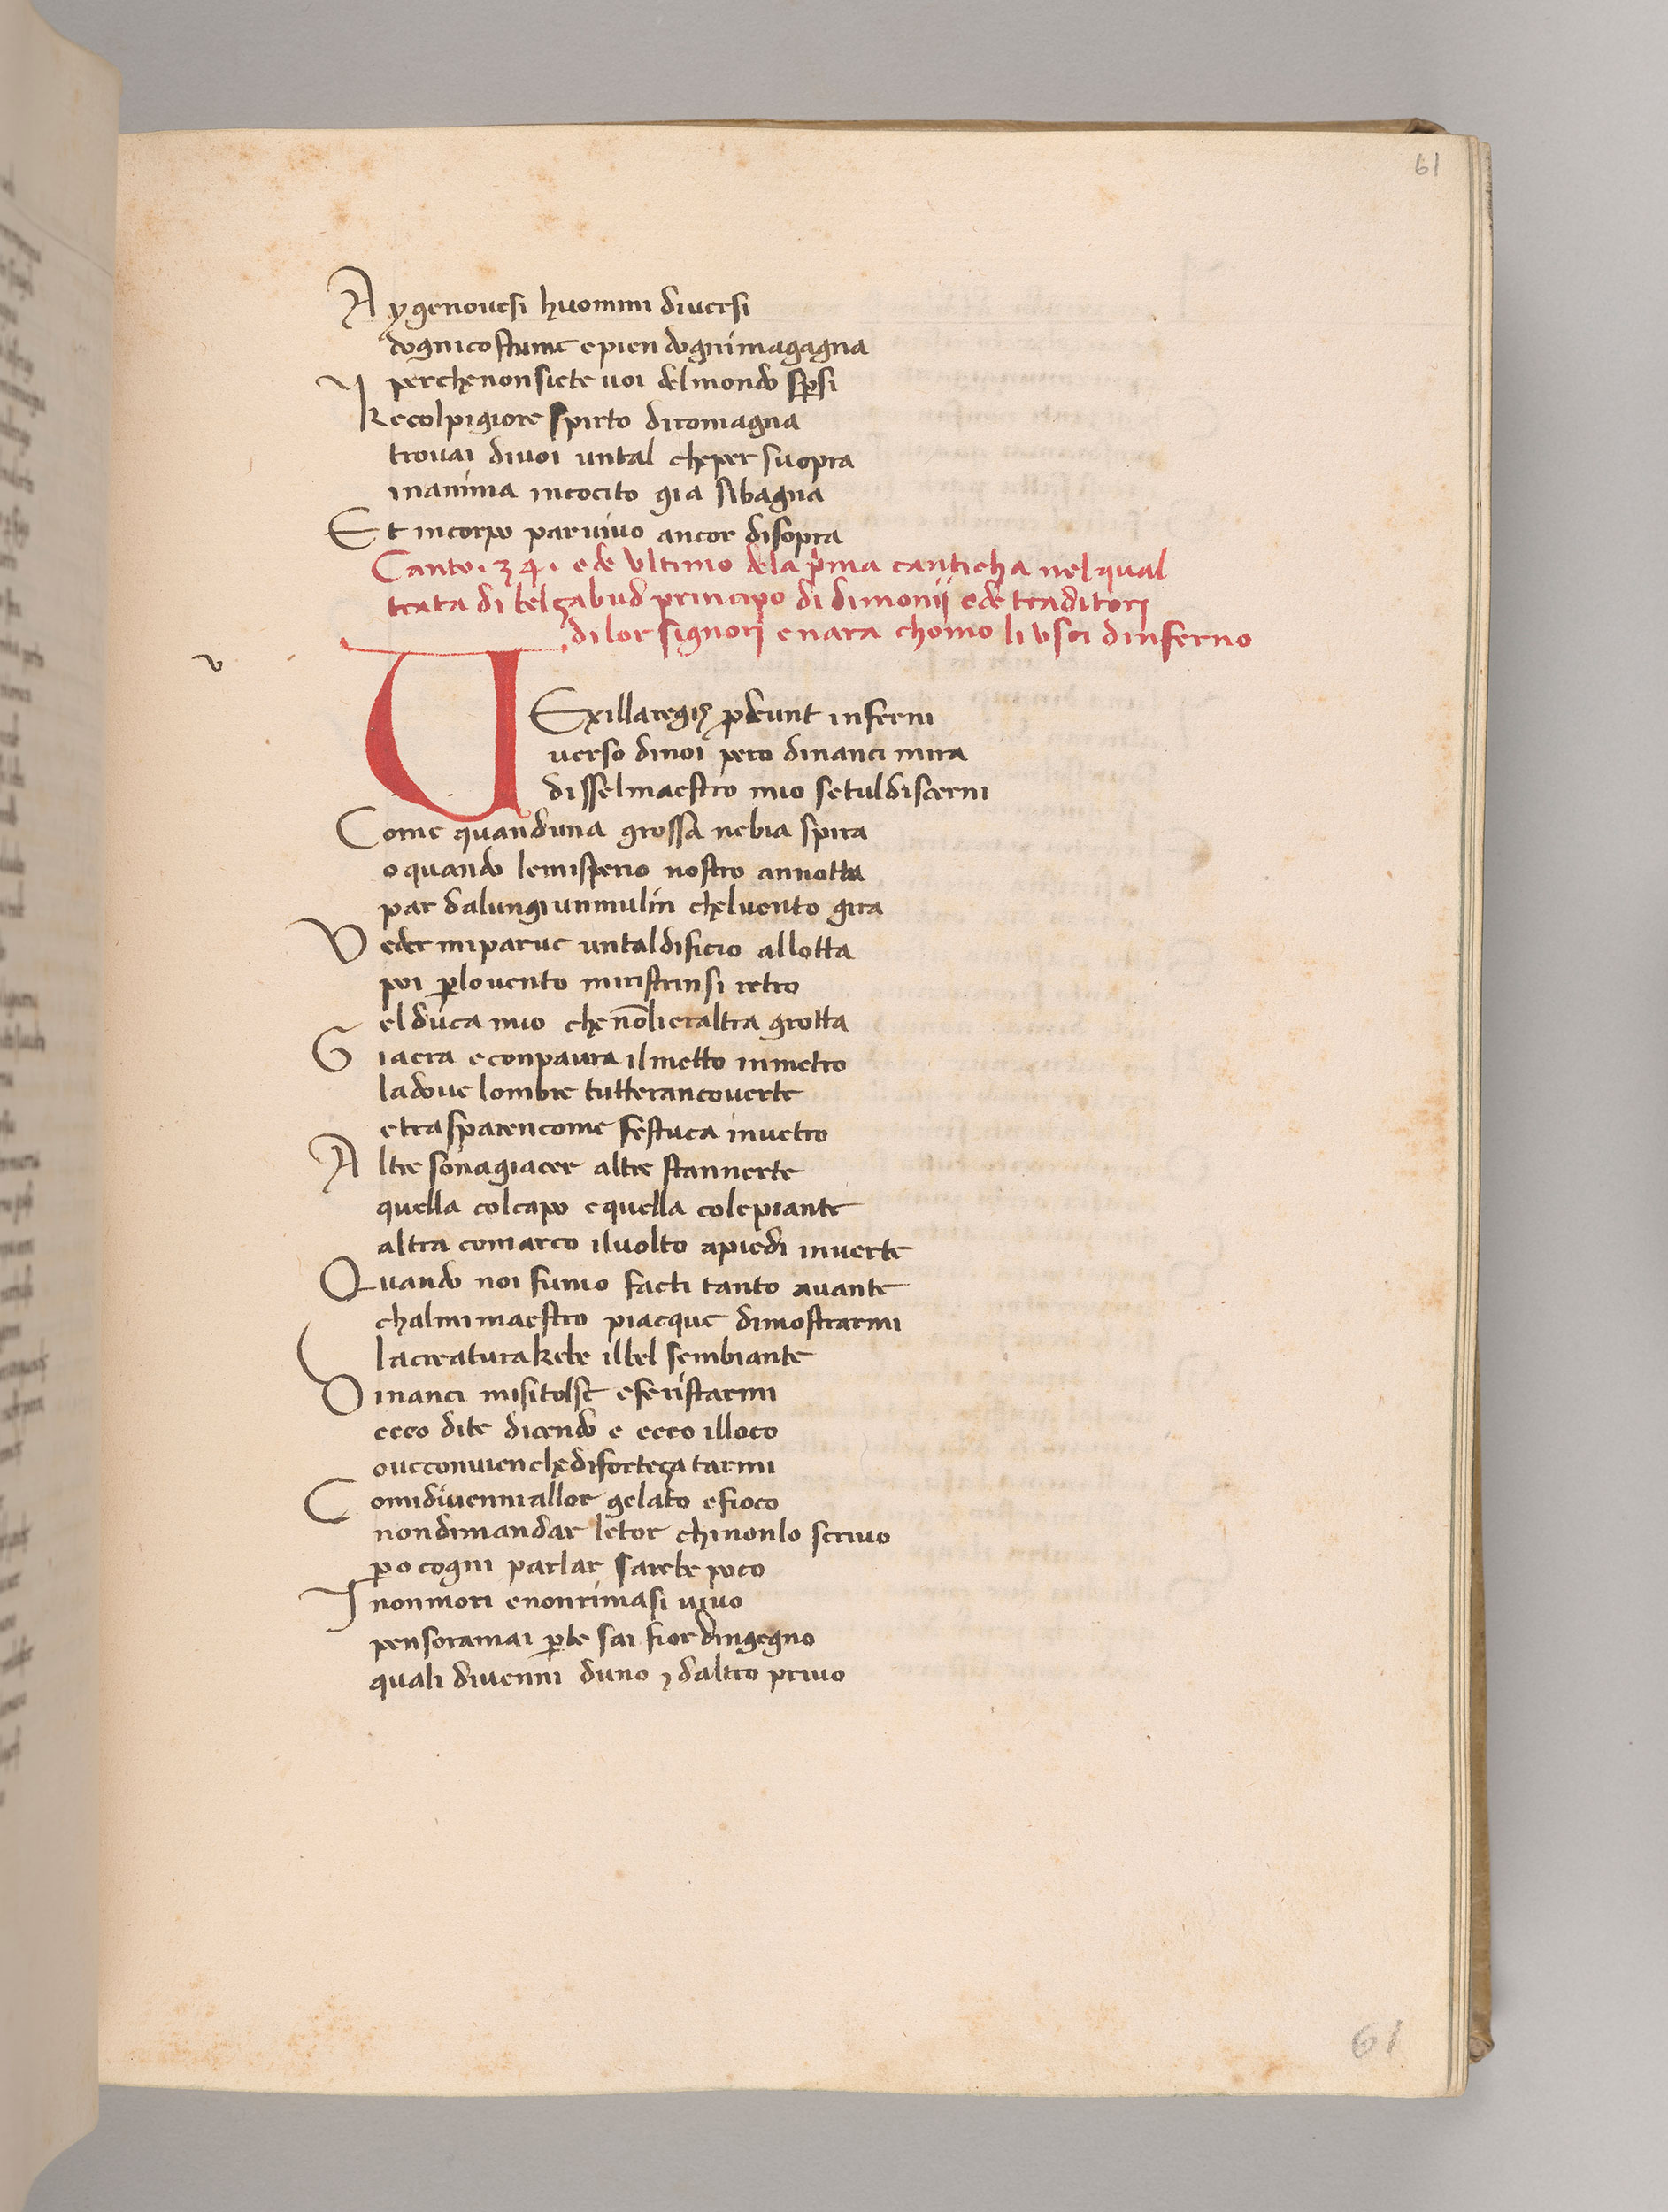 61
Ay genovesi huomini diversi
dognicostume epien dognimagagna
perche non siete voi delmondo spsi
Kecolpigiore spirto diromagna
trovai divoi untal cheper suopra
inanima incocito gia sibagna
Et incorpo parvivo ancor disopra
Canto .34. ede Ultimo dela pma canticha nel qual
trata di belzabud principo di dimonij ede traditorj
di lor signorj enara chomo li Usci dinferno
v
UExillaregis pdeunt inferni
verso dinoi pero dinanci mira
disselmaestro mio setuldiscerni
Come quanduna grossa nebia spira
o quando lemisperio nostro annotta
par dalungi unmulin chelvento gira
Veder miparve untaldificio allotta
poi plovento miristrinsi retro
el duca mio che nōlieraltra grotta
Giaera econpaura ilmetto inmetro
ladove lombre tutterancoverte
etrasparencome festuca invetro
Altre sonagiacer altre stannerte
quella colcapo equella colepiante
altra comarco ilvolto apiedi inverte
Quando noi fumo facti tanto avante
chalmimaestro piacque dimostrarmi
lacreaturakebe ilbel sembiante
Dinanci misitolse eferistarmi
ecco dite dicendo e ecco illoco
oveconvienchedifortega tarmi
Comidivenniallor gelato efioco
nondimandar letor chinonlo scrivo
po cogni parlar sarebe poco
I nonmori enonrimasi vivo
pensoramai pte sai fior dingegno
quali divenni duno ⁊ daltro privo
61